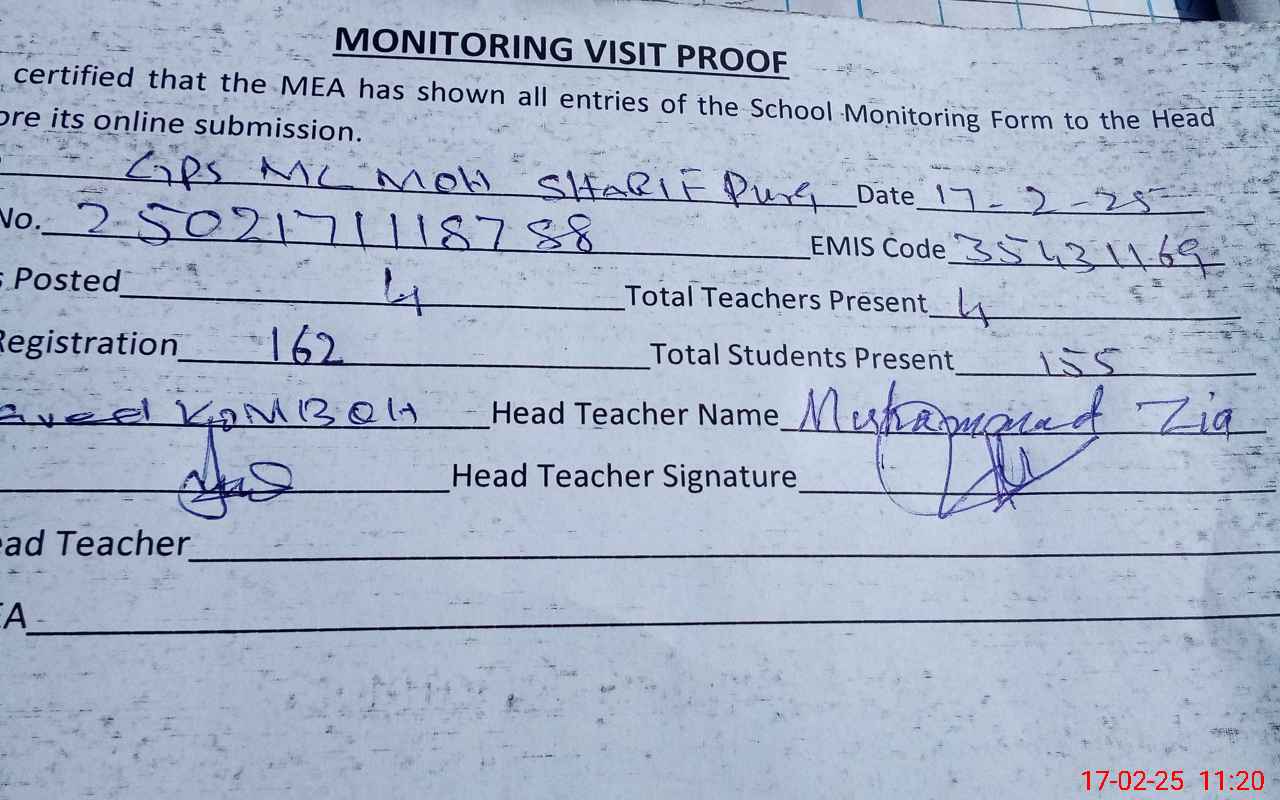 MONITORING VISIT PROOF
certified that the MEA has shown all entries of the School Monitoring Form to the Head
ore its online submission.
GPS MC MOH SHARIF Purq Date 17-2-25
No. 2502171118788 EMIS Code 35431169
s Posted 4 Total Teachers Present 4
Registration 162 Total Students Present 155
aveed KOMBOH Head Teacher Name Muhammad Zia
Head Teacher Signature
ead Teacher
EA
17-02-25 11:20